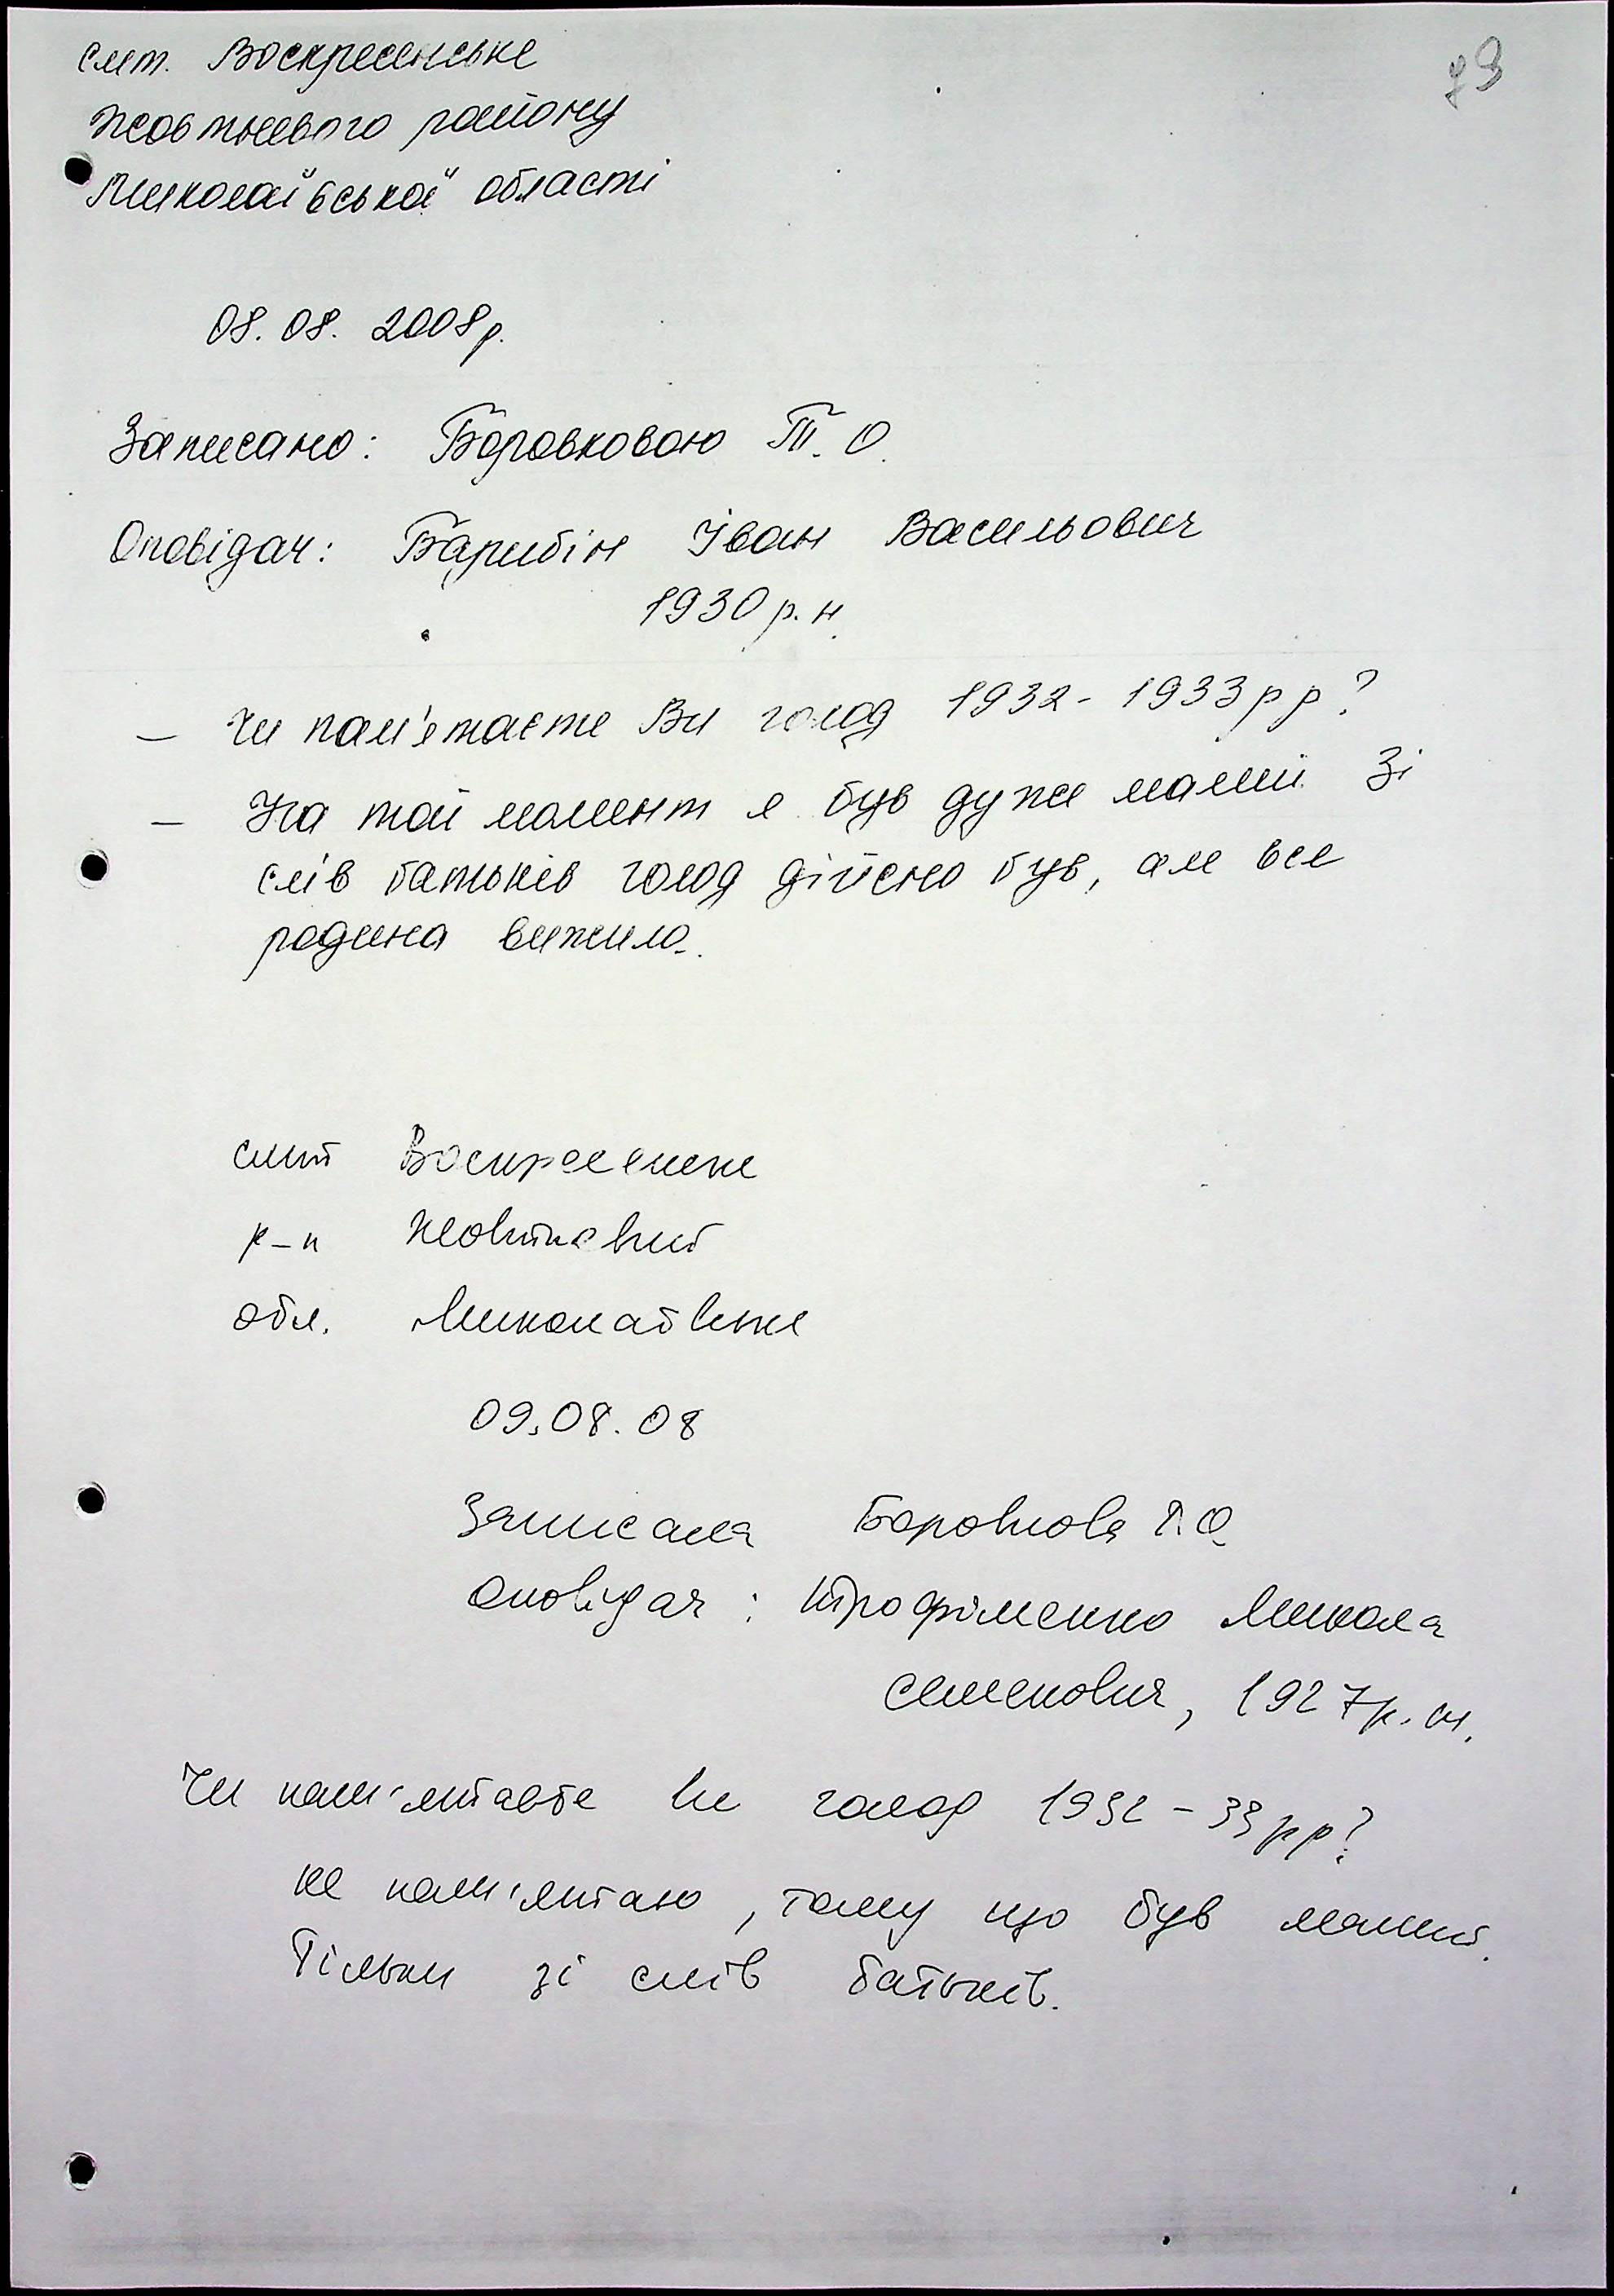 79
смт. Воскресенське
Жовтневого району
Миколаївської області
08.08.2008р.
Записано: Боровковою Т.О.
Оповідач: Барибін Іван Васильович
1930 р.н.
– Чи пам'ятаєте Ви голод 1932-1933 рр?
– На той момент я був дуже малий. Зі
слів батьків голод дійсно був, але вся
родина вижила.
смт Воскресенське
р-н Жовтневий
обл. Миколаївська
09.08.08
Записала Боровкова Т.О.
Оповідач: Трофіменко Микола
Семенович, 1927р.н.
Чи пам'ятаєте Ви голод 1932-33 рр?
Не пам'ятаю, тому що був малий.
Тільки зі слів батьків.